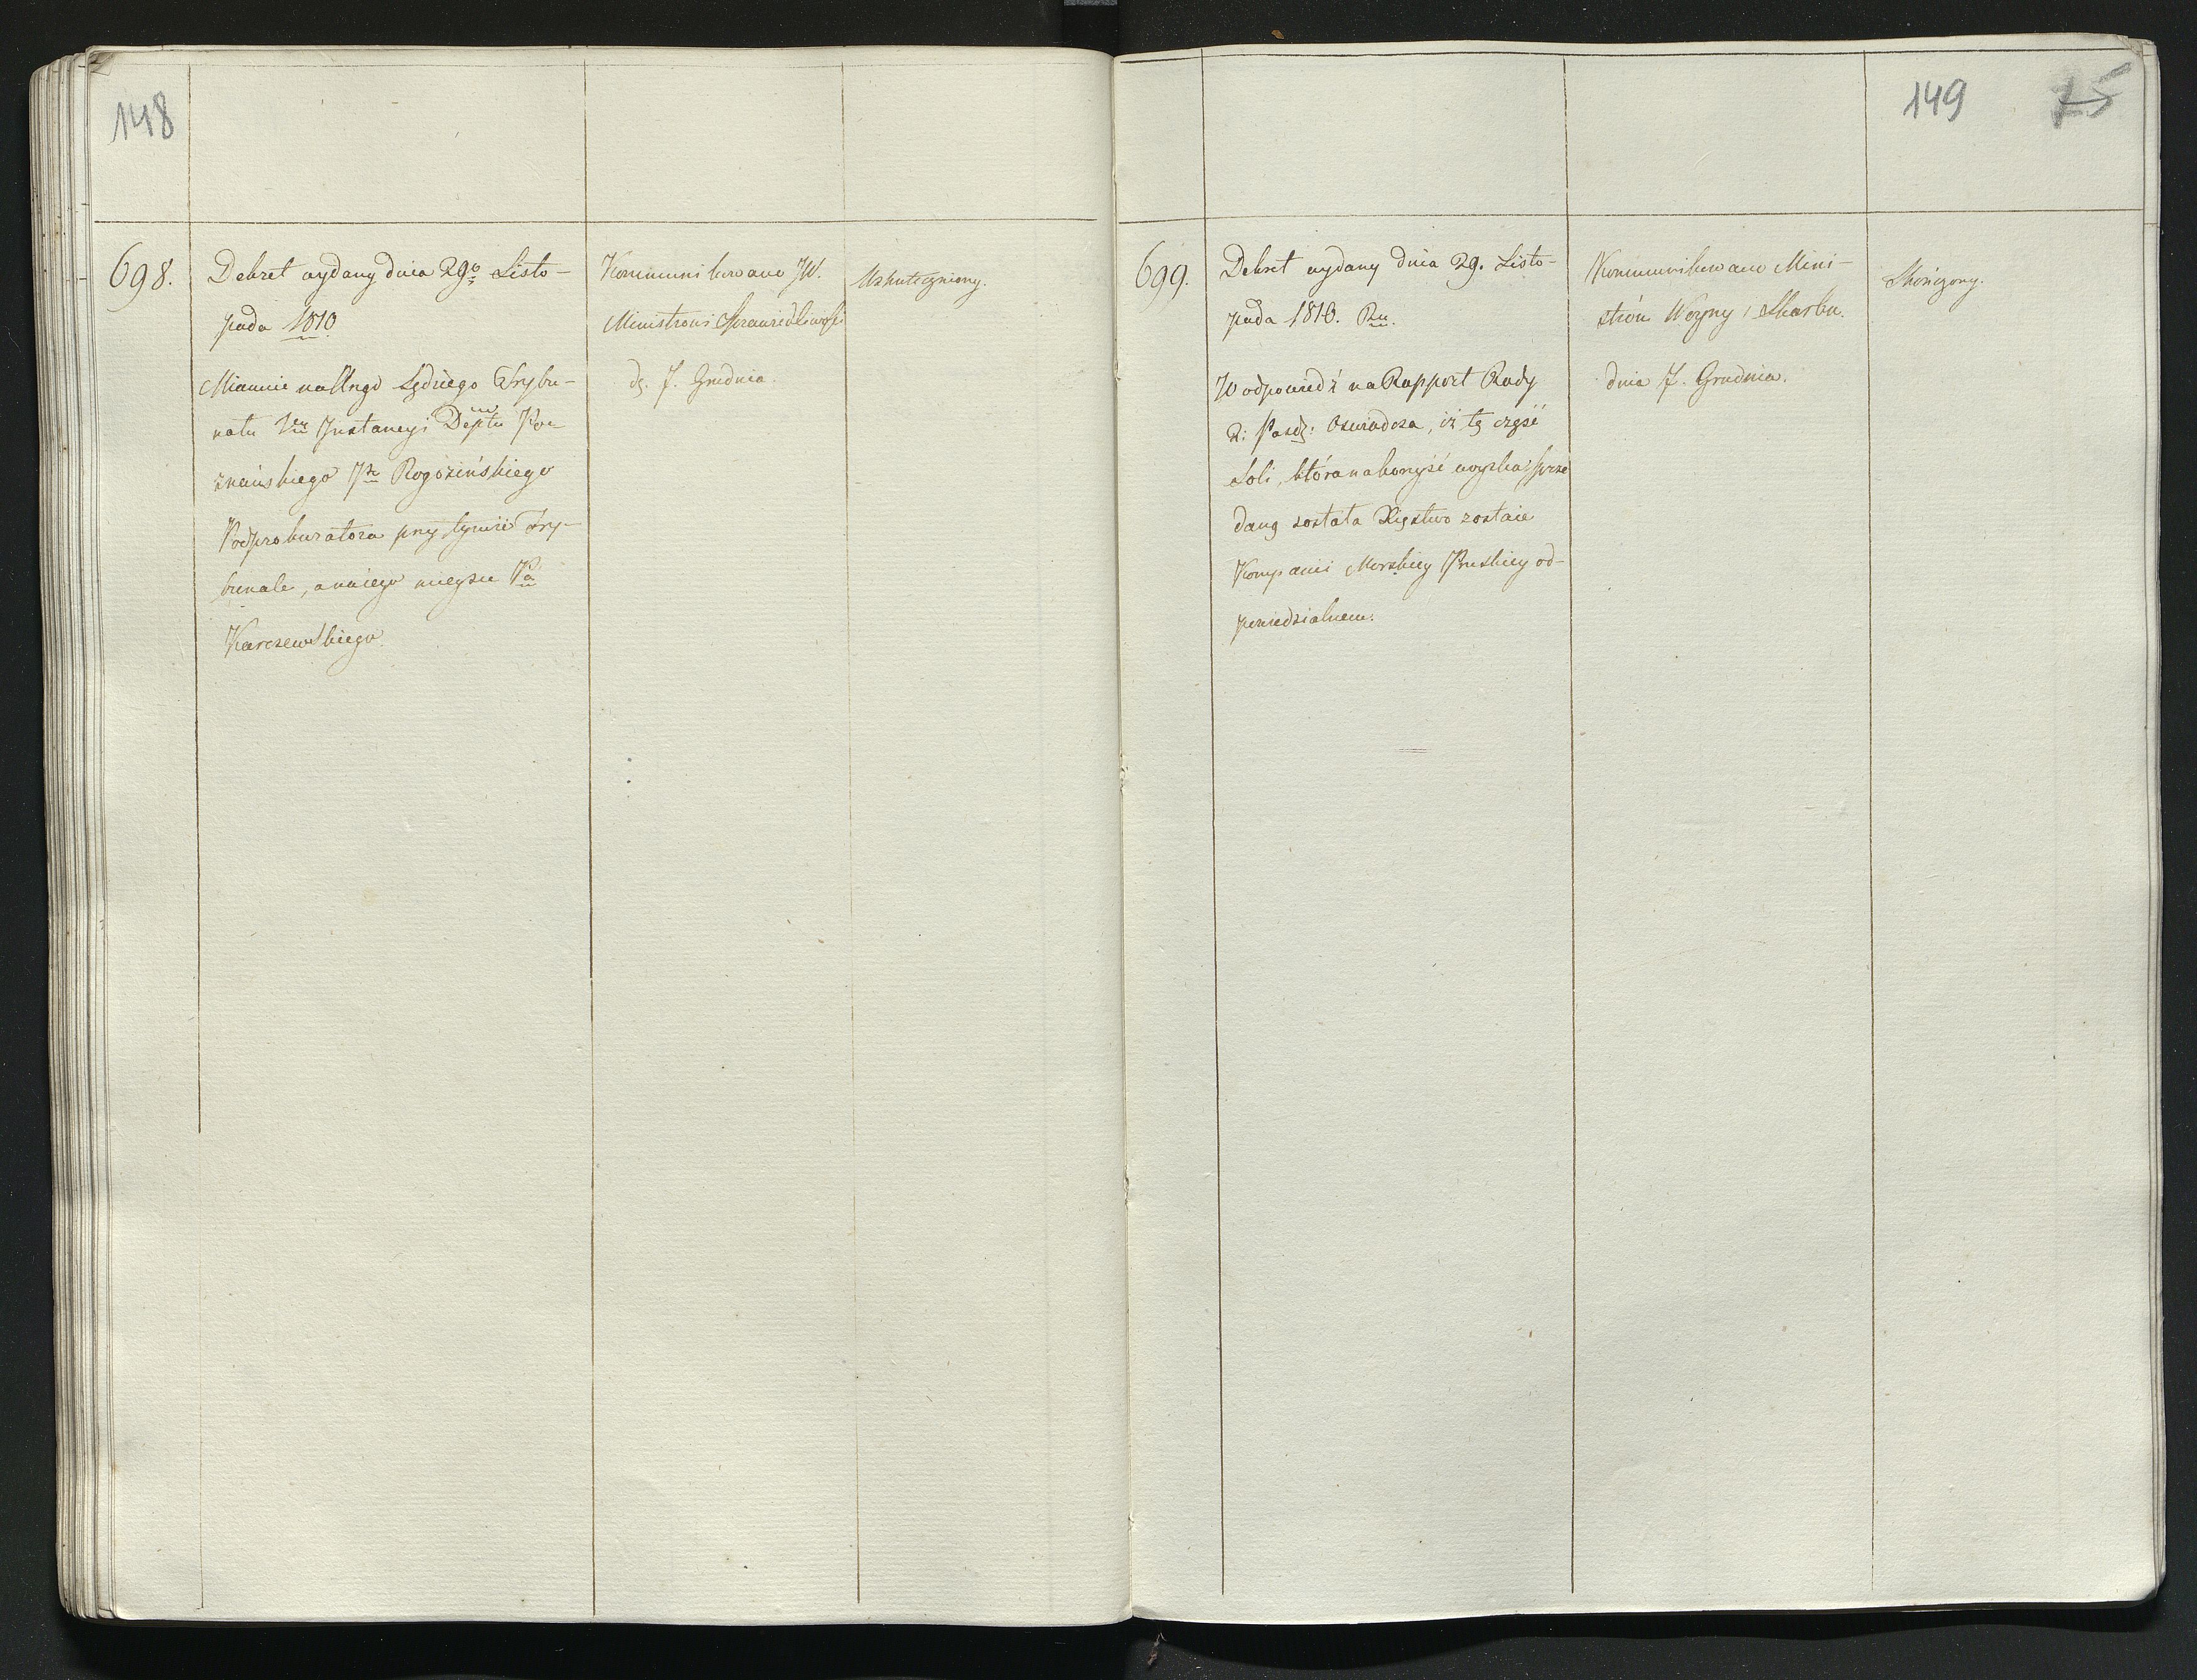 148
698.
Dekret wydany dnia 29o Listo-
pada 1810
Mianuie na
Sędziego Trybu-
natu Iey Instancyi Deptu Poz
znańskiego Pa Rogozińskiego
Podprokuratora przy tymże Try-
bunale, a na iego mieysce Pa
Karczewskiego.
Kommunikowano JW.
Ministrowi Sprawiedliwości
d. 7. Grudnia.
Uskuteczniony.
149 75
699.
Dekret wydany dnia 29. Listo-
pada 1810. Ru.
W odpowiedź na Rapport Rady
oswiadcza, iż tę część
Soli, która na korzyść woyska sprze
daną została Xięstwo zostaie
Kompanii Morskiey Pruskiey od-
powiedzialnem.
Kommunikowano Mini-
strom Woyny i Skarbu.
dnia 7. Grudnia.
Skończony.